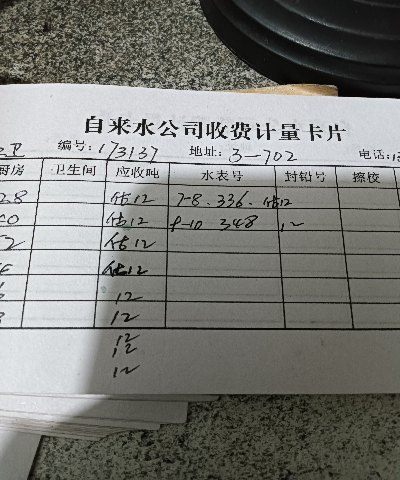 自来水公司收费计量卡片
编号: 173137 地址: 3-702 电话:
厨房 卫生间 应收吨 水表号 封铅号 擦校
28 估12 7-8. 336. 估12
估12 8-10 348 12
估12
估12
12
12
12
12
12